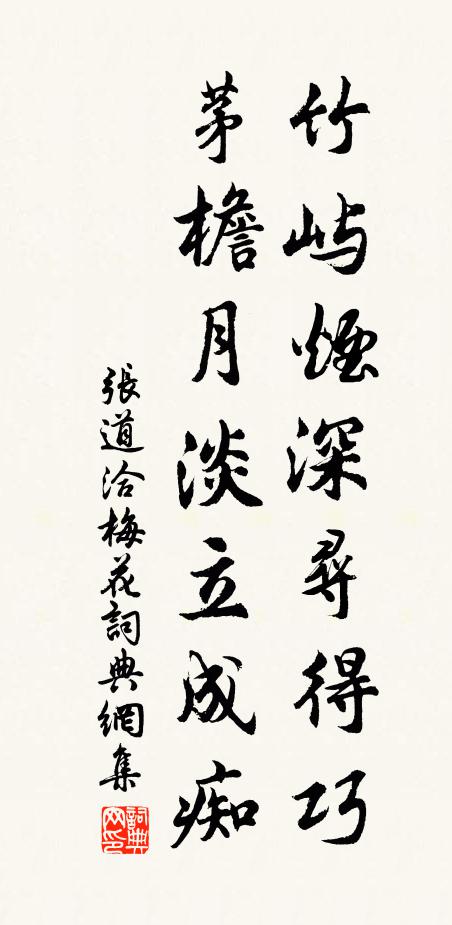 竹屿煙深尋得巧
茅檐月淡立成痴
張道洽梅花詞典網集
詞典网印